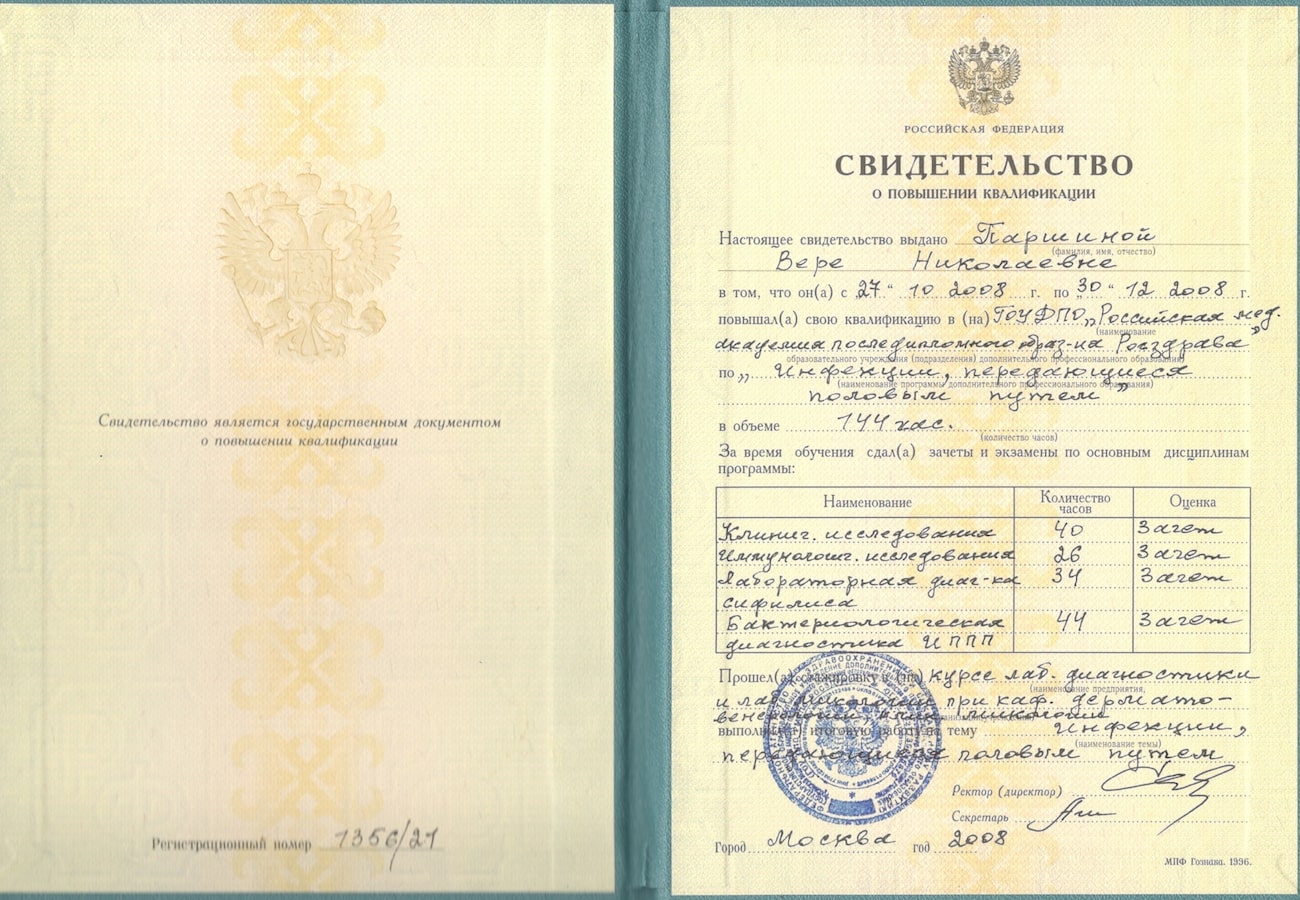 Свидетельство является государственным документом
о повышении квалификации
Регистрационный номер 1356/21
РОССИЙСКАЯ ФЕДЕРАЦИЯ
СВИДЕТЕЛЬСТВО
О ПОВЫШЕНИИ КВАЛИФИКАЦИИ
Настоящее свидетельство выдано Паршиной
(фамилия, имя, отчество)
Вере Николаевне
в том, что он(а) с „27“ 10 2008 г. по „30“ 12 2008 г.
повышал(а) свою квалификацию в (на) ГОУДПО „Российская мед.
(наименование
академия последипломного образ-ия Росздрава”
образовательного учреждения (подразделения) дополнительного профессионального образования)
по „Инфекции, передающиеся
(наименование программы дополнительного профессионального образования)
половым путем”
в объеме 144 час.
(количество часов)
За время обучения сдал(а) зачеты и экзамены по основным дисциплинам
программы:
Наименование Количество часов Оценка
Клинич. исследования 40 Зачет
Иммунологич. исследования 26 Зачет
Лабораторная диаг-ка 34 Зачет
сифилиса
Бактериологическая 44 Зачет
диагностика ИППП
Прошел(а) стажировку в (на) курсе лаб. диагностики
(наименование предприятия,
и лаб. микологии при каф. дермато-
венерологии
выполнил(а) итоговую работу на тему Инфекции,
(наименование темы)
передающиеся половым путем
Ректор (директор)
Секретарь
Город Москва год 2008
МПФ Гознака. 1996.